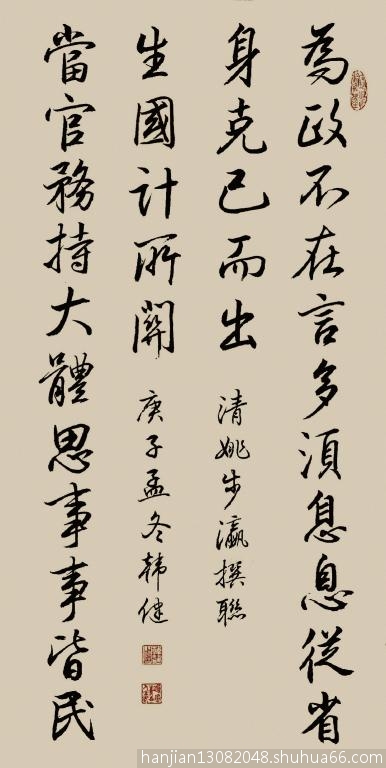 為政不在言多須息息從省
身克己而出
清姚步瀛撰聯
當官務持大體思事事皆民
生國計所關
庚子孟冬韓健
hanjian13082048.shuhua66.com